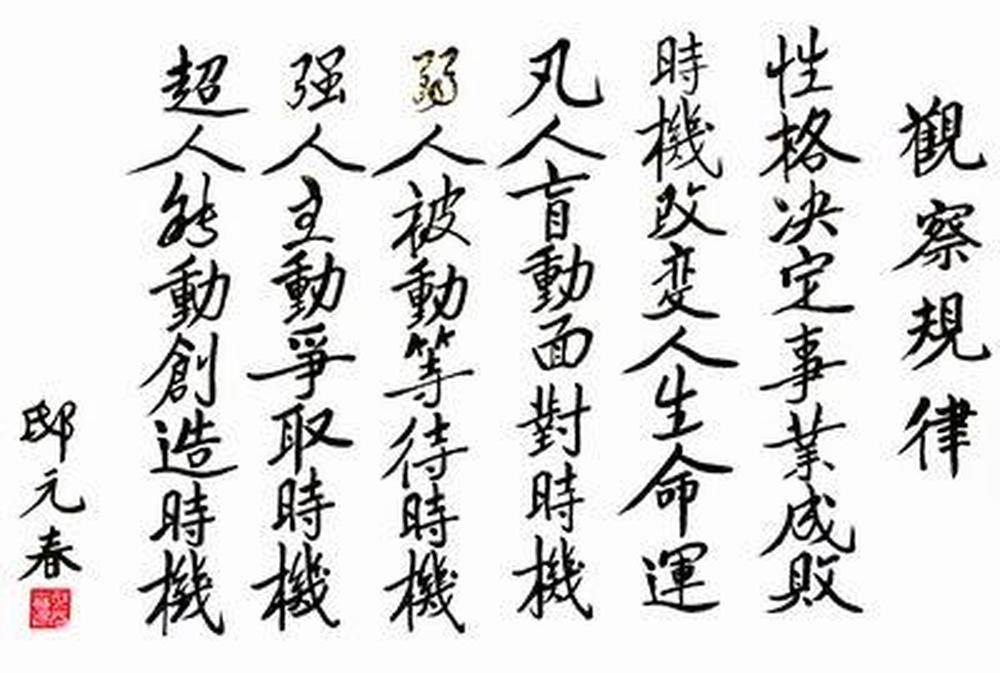 觀察規律
性格决定事業成敗
時機改变人生命運
凡人盲動面對時機
弱人被動等待時機
强人主動爭取時機
超人能動創造時機
邸元春